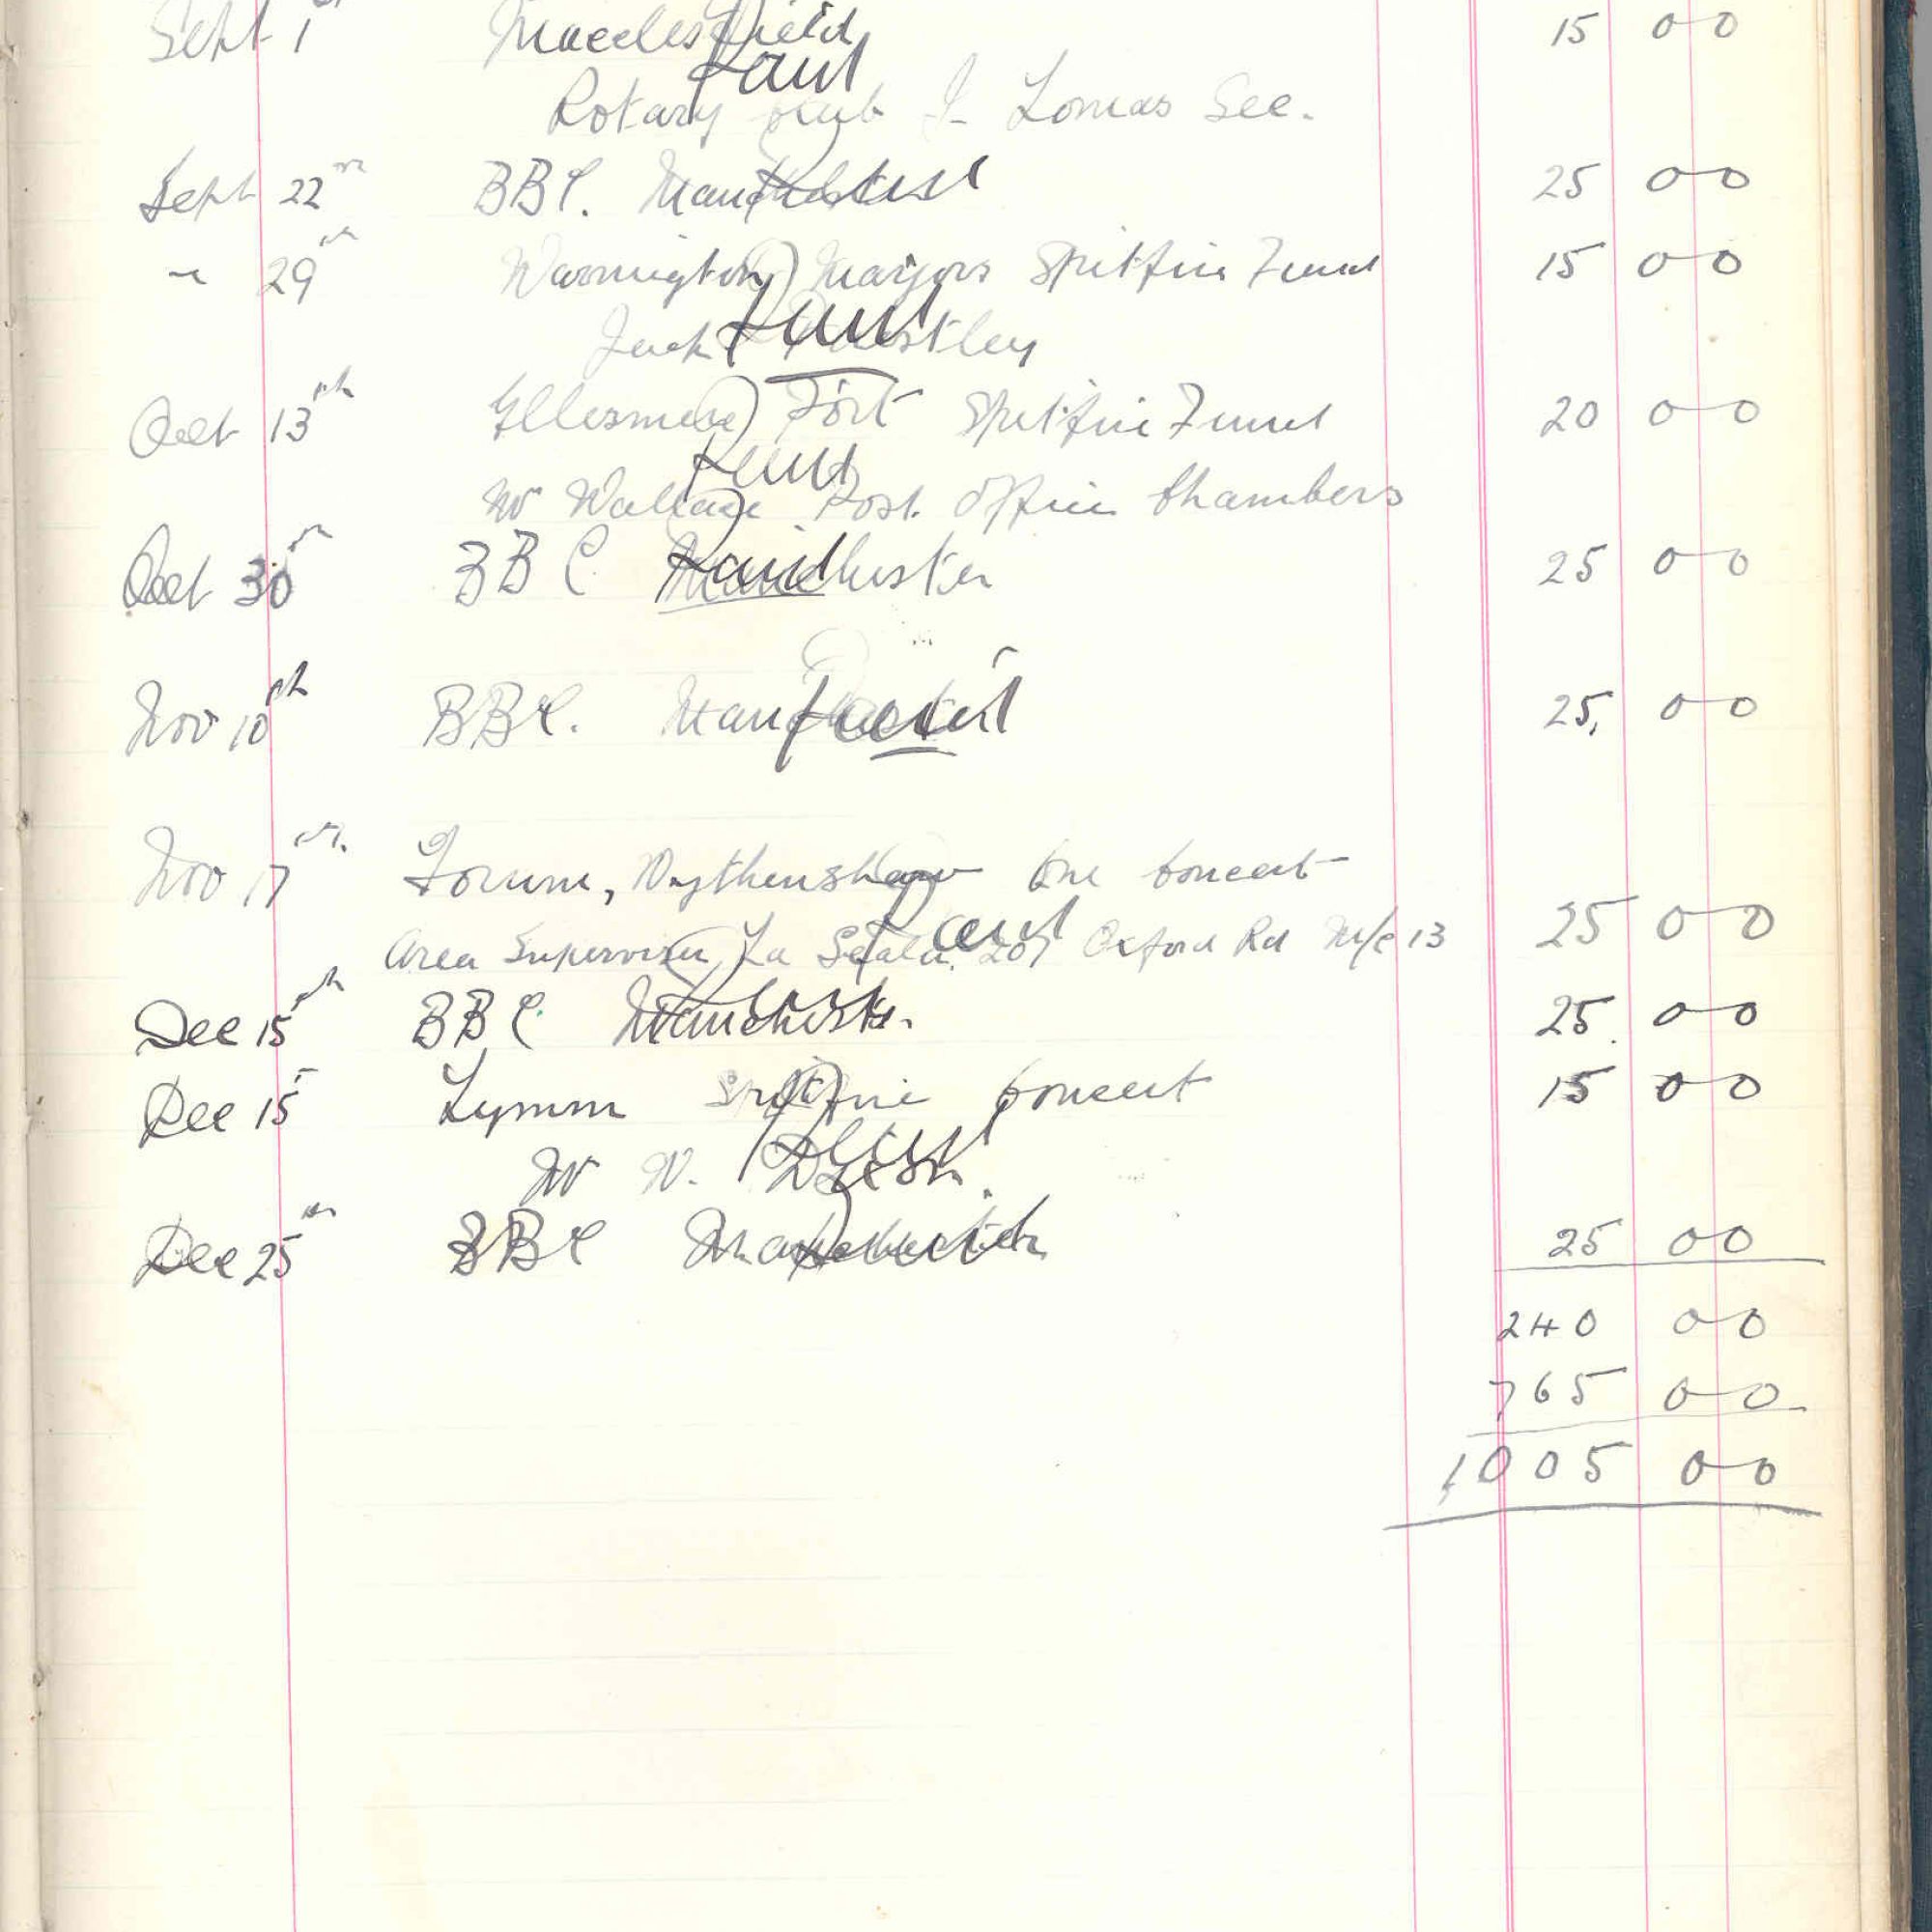 Sept 1st Macclesfield 15 0 0
Paid
Rotary Club J Lomas Sec.
Sept 22nd BBC. Manchester Paid 25 0 0
" 29th Warrington Mayors Spitfire Fund 15 0 0
Paid
Jack
Oct 13th Ellesmere Port Spitfire Fund 20 0 0
Paid
Mr Wallace Post Office Chambers
Oct 30th BBC Manchester Paid 25 0 0
Nov 10th BBC. Manchester Paid 25, 0 0
Nov 17th. Forum, Wythenshawe One Concert
Paid 25 0 0
Area Supervisor La Scala. 207 Oxford Rd M/c 13
Dec 15th BBC Manchester. Paid 25. 0 0
Dec 15 Lymm Spitfire Concert 15 0 0
Paid
Mr W.
Dec 25th BBC Manchester Paid 25 0 0
240 0 0
765 0 0
1005 0 0